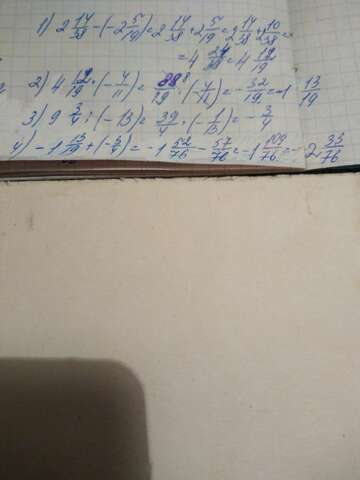 1) 2 14/38 - (-2 5/19) = 2 14/38 + 2 5/19 = 2 14/38 + 2 10/38 =
= 4 24/38 = 4 12/19
2) 4 12/19 · (-4/11) = 88/19 · (-4/11) = -32/19 = -1 13/19
3) 9 3/4 : (-13) = 39/4 · (-1/13) = -3/4
4) -1 13/19 + (-3/4) = -1 52/76 - 57/76 = -1 109/76 = -2 33/76